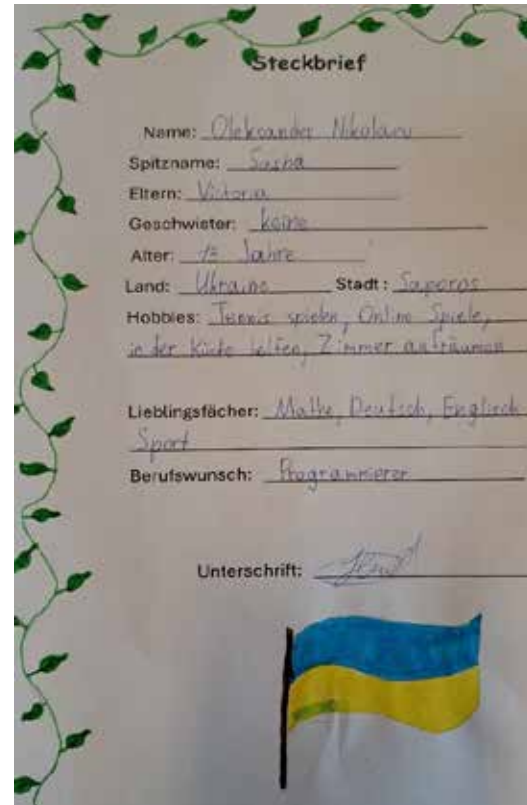 Steckbrief
Name: Oleksander Nikolaev
Spitzname: Sasha
Eltern: Victoria
Geschwister: keine
Alter: 13 Jahre
Land: Ukraine Stadt: Saporos
Hobbies: Tennis spielen, Online Spiele,
in der Küche helfen, Zimmer aufräumen
Lieblingsfächer: Mathe, Deutsch, Englisch
Sport
Berufswunsch: Programmierer
Unterschrift: